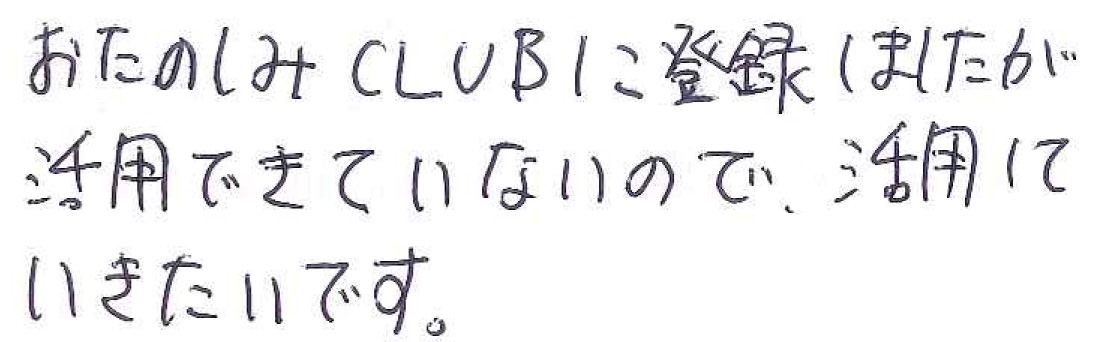 おたのしみCLUBに登録しましたが
活用できていないので、活用して
いきたいです。